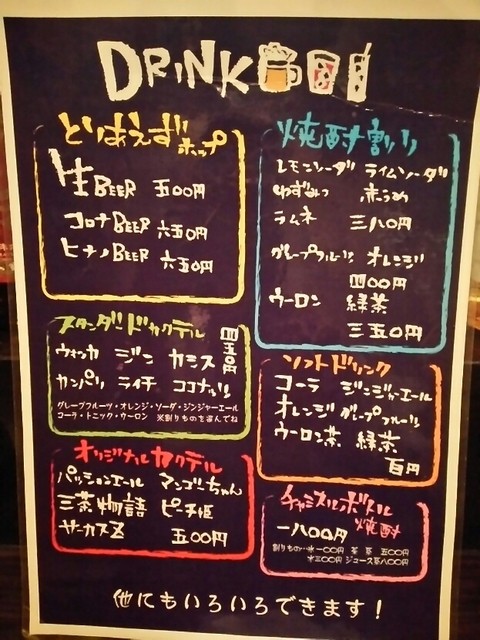 DRINK
とりあえずホップ
生BEER 五00円
コロナBEER 六五0円
ヒナノBEER 六五0円
焼酎割り
レモンソーダ ライムソーダ
ゆずみつ 赤うめ
ラムネ 三八0円
グレープフルーツ オレンジ
四00円
ウーロン 緑茶
三五0円
スタンダードカクテル 四五0円
ウォッカ ジン カシス
カンパリ ライチ ココナッツ
グレープフルーツ・オレンジ・ソーダ・ジンジャーエール
コーラ・トニック・ウーロン ※割りものをえらんでね
ソフトドリンク
コーラ ジンジャーエール
オレンジ グレープフルーツ
ウーロン茶 緑茶
百円
オリジナルカクテル
パッションエール マンゴーちゃん
三茶物語 ピーチ姫
サーカスZ 五00円
チャミスルボトル
一八00円 焼酎
割りもの…氷一00円 茶 五00円
水三00円 ジュース 八00円
他にもいろいろできます!